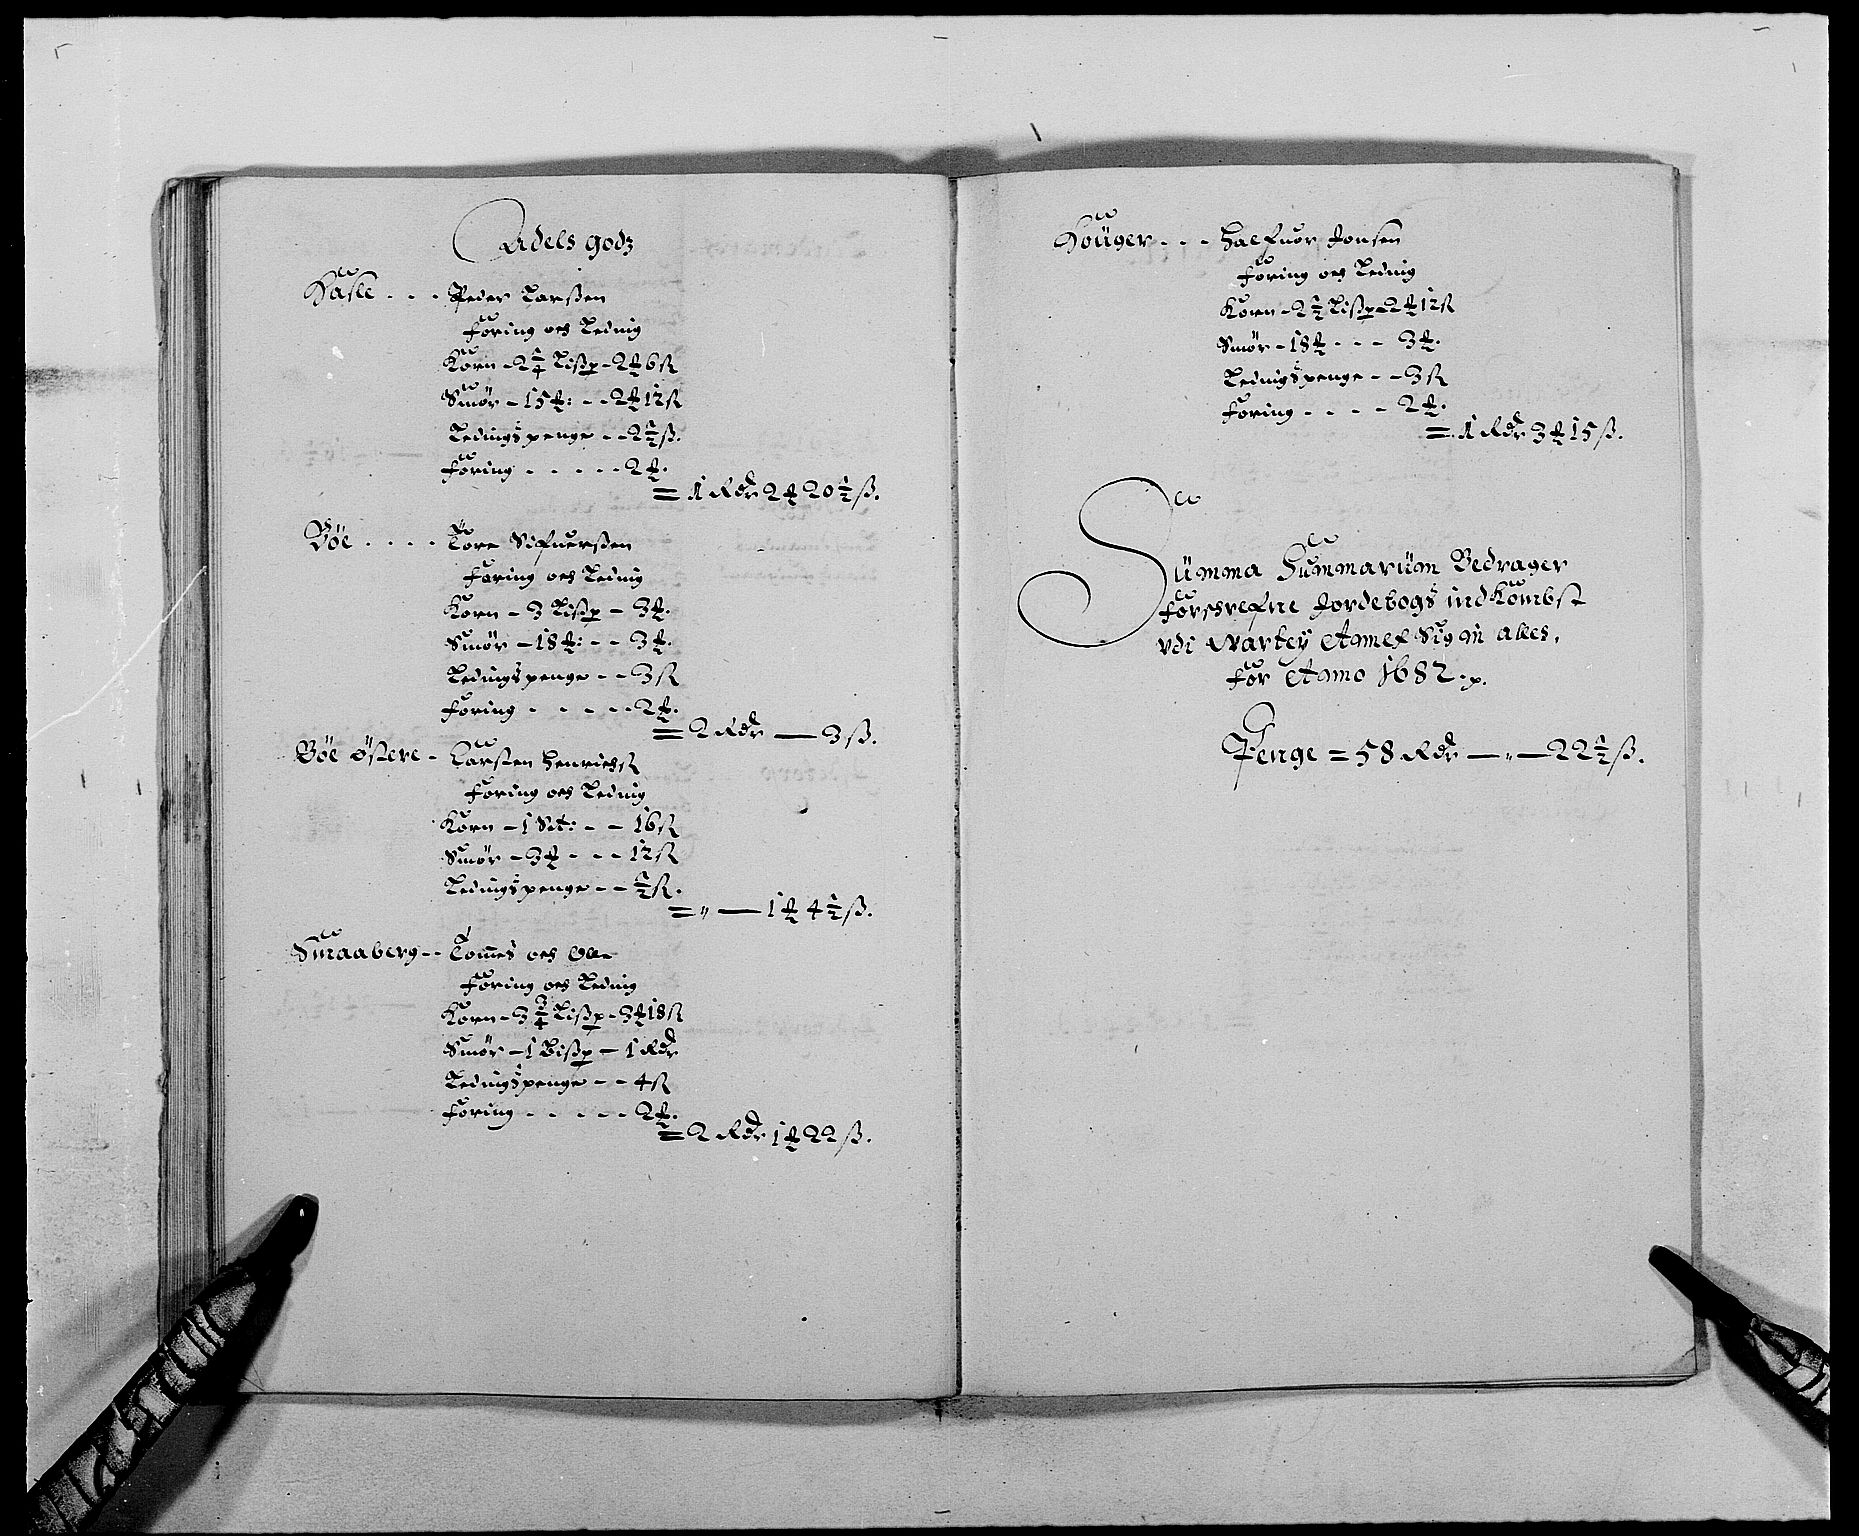 Adels godz
Hasle - - - Peder Larßen
Foring och Leding
Korn - 2 1/4 Lißp - 2 ℔ 6 ß
Smør - 15 ℔: - - 2 ℔ 12 ß
Ledingspenge - - 2 1/2 ß.
Foring - - - - - 2 ℔.
= 1 Rdr 2 ℔ 20 1/2 ß.
Bøe . . . . Tore Sifuerßen
Foring och Leding
Korn - 3 Lißp - 3 ℔.
Smør - 18 ℔: - - 3 ℔.
Ledingspenge - - 3 ß
Foring - - - - - 2 ℔.
= 2 Rdr — 3 ß.
Bøe østere - Larßen Henrichß
Foring och Leding
Korn - 1 Set: - - 16 ß
Smør - 3 ℔ - - - 12 ß
Ledingspenge - - 1/2 ß.
= " — 1 ℔ 4 1/2 ß.
Smaaberg - - Tommes och Olle
Foring och Leding
Korn - 3 3/4 Lißp - 3 ℔ 18 ß
Smør - 1 Bißp - 1 Rdr
Ledingspenge - - 4 ß
Foring - - - - - 2 ℔.
= 2 Rdr 1 ℔ 22 ß.
Houger - - - Halfuor Jonsen
Foring och Leding
Korn - 2 1/2 Lißp - 2 ℔ 12 ß
Smør - 18 ℔ - - - 3 ℔.
Ledingspenge - - 3 ß
Foring - - - - 2 ℔.
= 1 Rdr 3 ℔ 15 ß.
Summa Summarum Bedrager
forschrefne Jordebogs indKombst
udi alles.
for Anno 1682.
Penge = 58 Rdr — " — 22 1/2 ß.